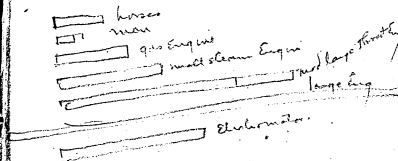 horses
man
gas Engine
small steam Engine
large
large Eng
Electromotor.